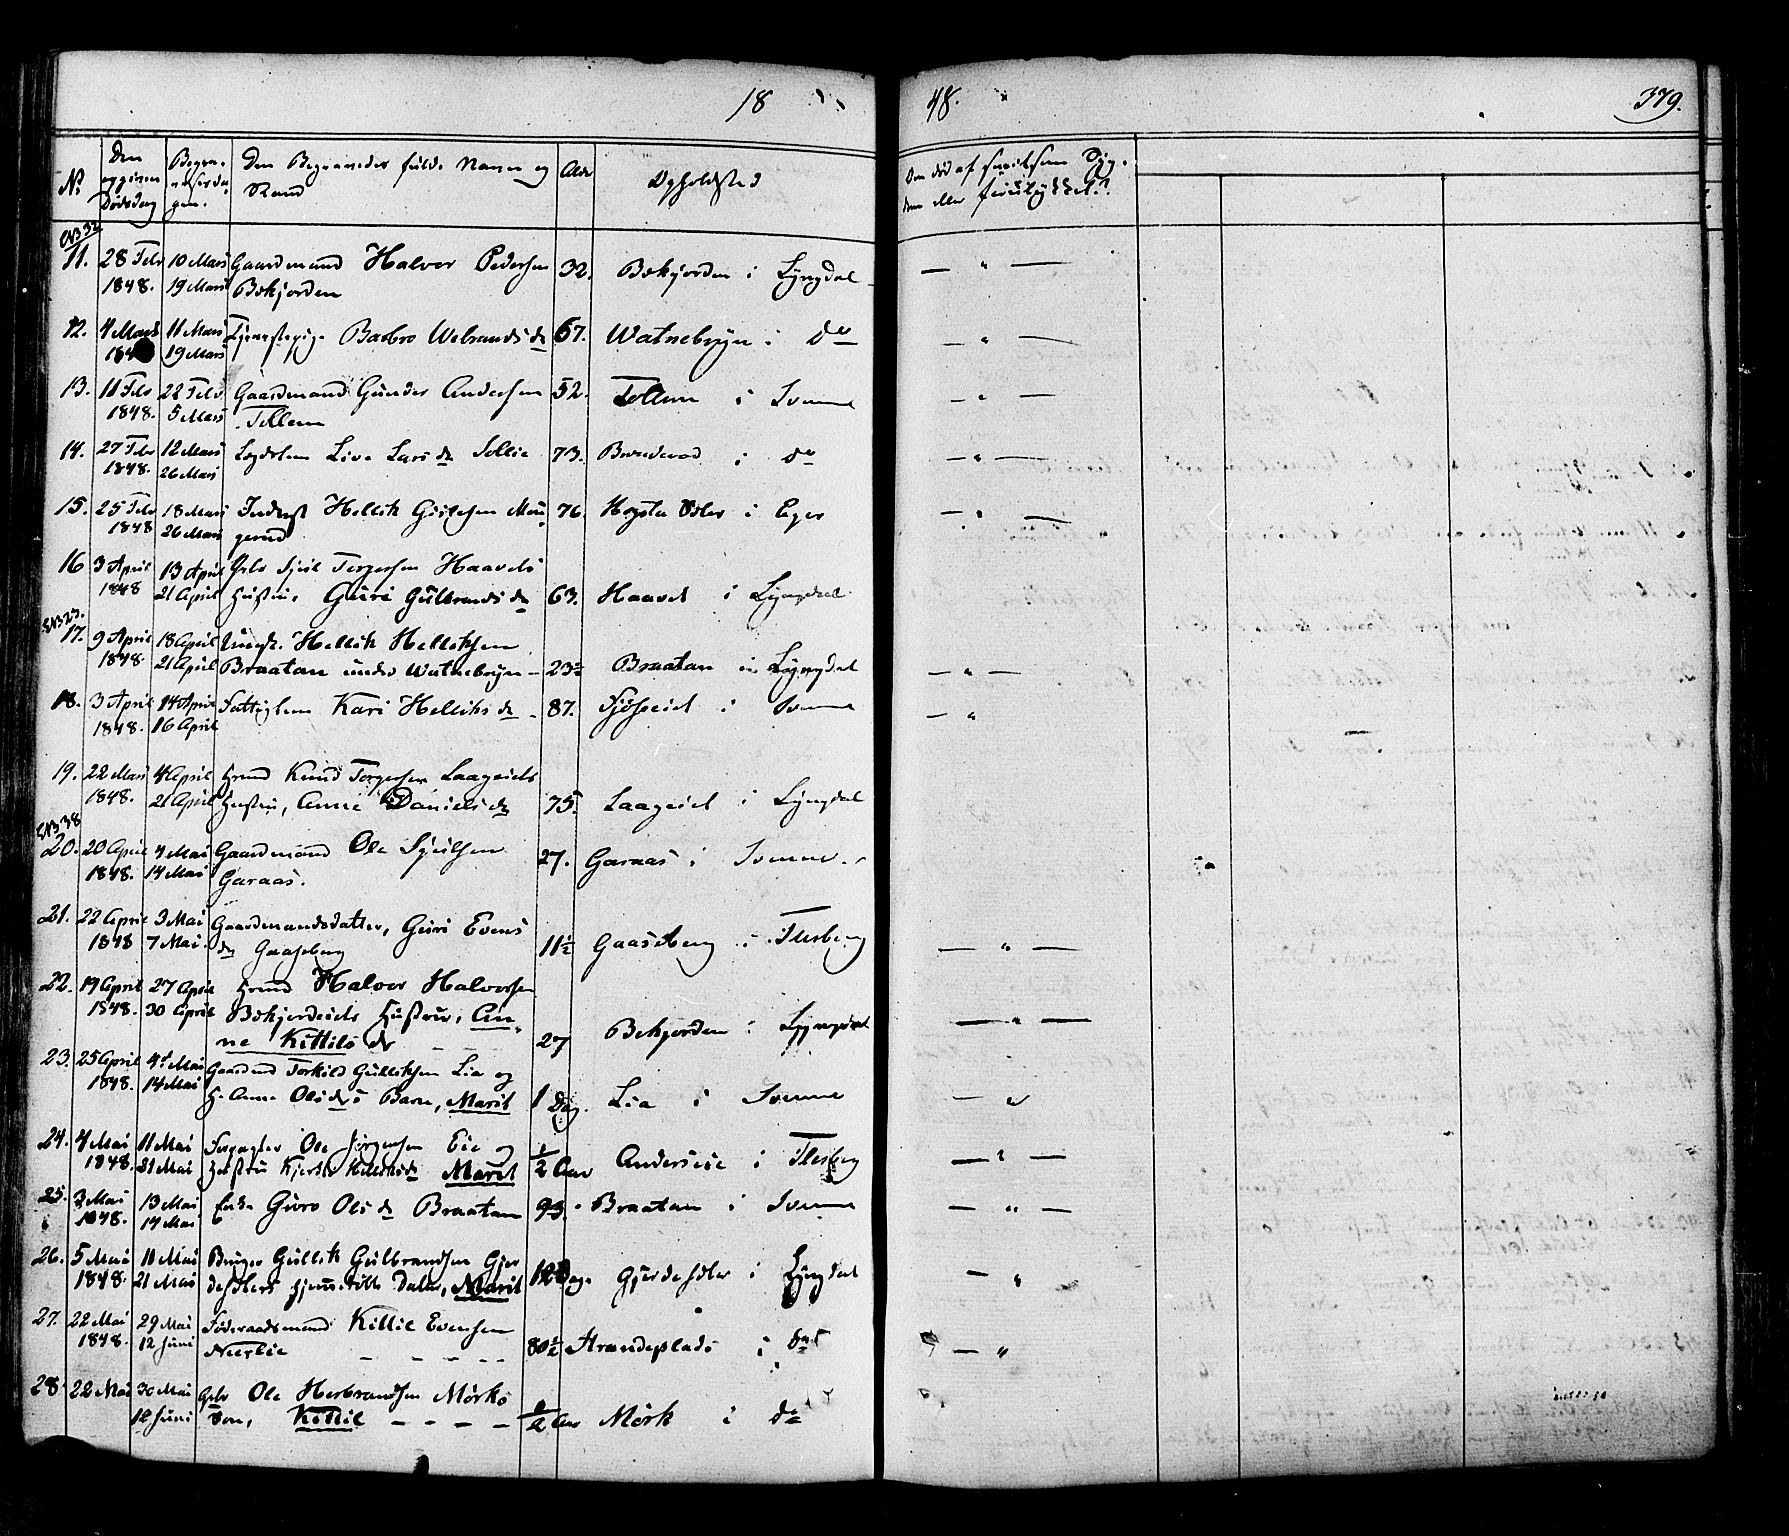 18
48.
379.
No
Den opgivne Dødsdag
Begra-velsesda-gen.
Den Begravedes fulde Navn og Stand
Alder
Opholdsted
Om død af smitsom Syg-
dom eller forulykket?
11. 28 Febr 1848. 10 Mars 19 Mars Gaardmand Halvor Pedersen 32. Bekjorden i Lyngdal
Bekjorden
12. 4 Mars 184 11 Mars 19 Mars Tjenestepige Barbro Webrandsdr 67. Watnebryn i do
13. 11 Febr 1848. 22 Febr 5 Mars Gaardmand Gunder Andersen 52. Tollem i Svenne
Tollem
14. 27 Febr 1848. 12 Mars 26 Mars Lægdslem Live Larsdr Sollie 73. i do
15. 25 Febr 1848 18 Mars 26 Mars Inderst Hellik 76. i Eger
gerud
16 3 April 1848 13 April 21 April Torgersen Haaveds
Hustru, Guri Gulbrandsdr 63. Haaved i Lyngdal
17. 9 April 1848. 18 April 21 April Ungk. Hellik Helliksen
Braatan under Watnebryn - 23½ Braatan in Lyngdal
18. 3 April 1848. 14 April 16 April Fattiglem Kari Helliksdr - 87. i Svenne
19. 22 Mars 1848. 4 April 21 April Grmd Knud Torgersen Laageids
Hustru, Anne Danielsdr 75. Laageid i Lyngdal
20. 20 April 1848. 4 Mai 14 Mai Gaardmand Ole 27. Garaas i Svenne
Garaas.
21. 22 April 1848 3 Mai 7 Mai. Gaardmandsdatter, Guri Evens
dr Gaaseberg 11½ Gaaseberg i Flesberg
22. 19 April 1848. 27 April 30 April Grmd Halvor Halvorsen
Hustru, An-
ne Kittilsdr 27 Bekjorden i Lyngdal
23. 25 April 1848. 4 Mai 14 Mai Gaardmd Torkild Gulliksen Lia og
H. Anne Olsdrs Barn, Marit 1 Dag. Lia i Svenne
24. 4 Mai 1848. 11 Mai 21 Mai Forpagter Ole Jørgensen Eie og
Hustru Kjersti Helliksdr Marit ½ Aar Anderseie i Flesberg
25. 3 Mai 1848. 13 Mai 14 Mai Enke Guro Olsdr Braatan 93. Braatan i Svenne
26. 5 Mai 1848. 11 Mai 21 Mai Bruger Gullik Gulbrandsen Gjer
Datter, Marit Dage i Lyngdal
27. 22 Mai 1848. 29 Mai 12 Juni Føderaadsmand Kittil Evensen
80½ Strandeplads i do
28 22 Mai 30 Mai 12 Juni Ole Herbrandsen Mørks
Søn, Kittil - - - - ½ Aar Mørk i do